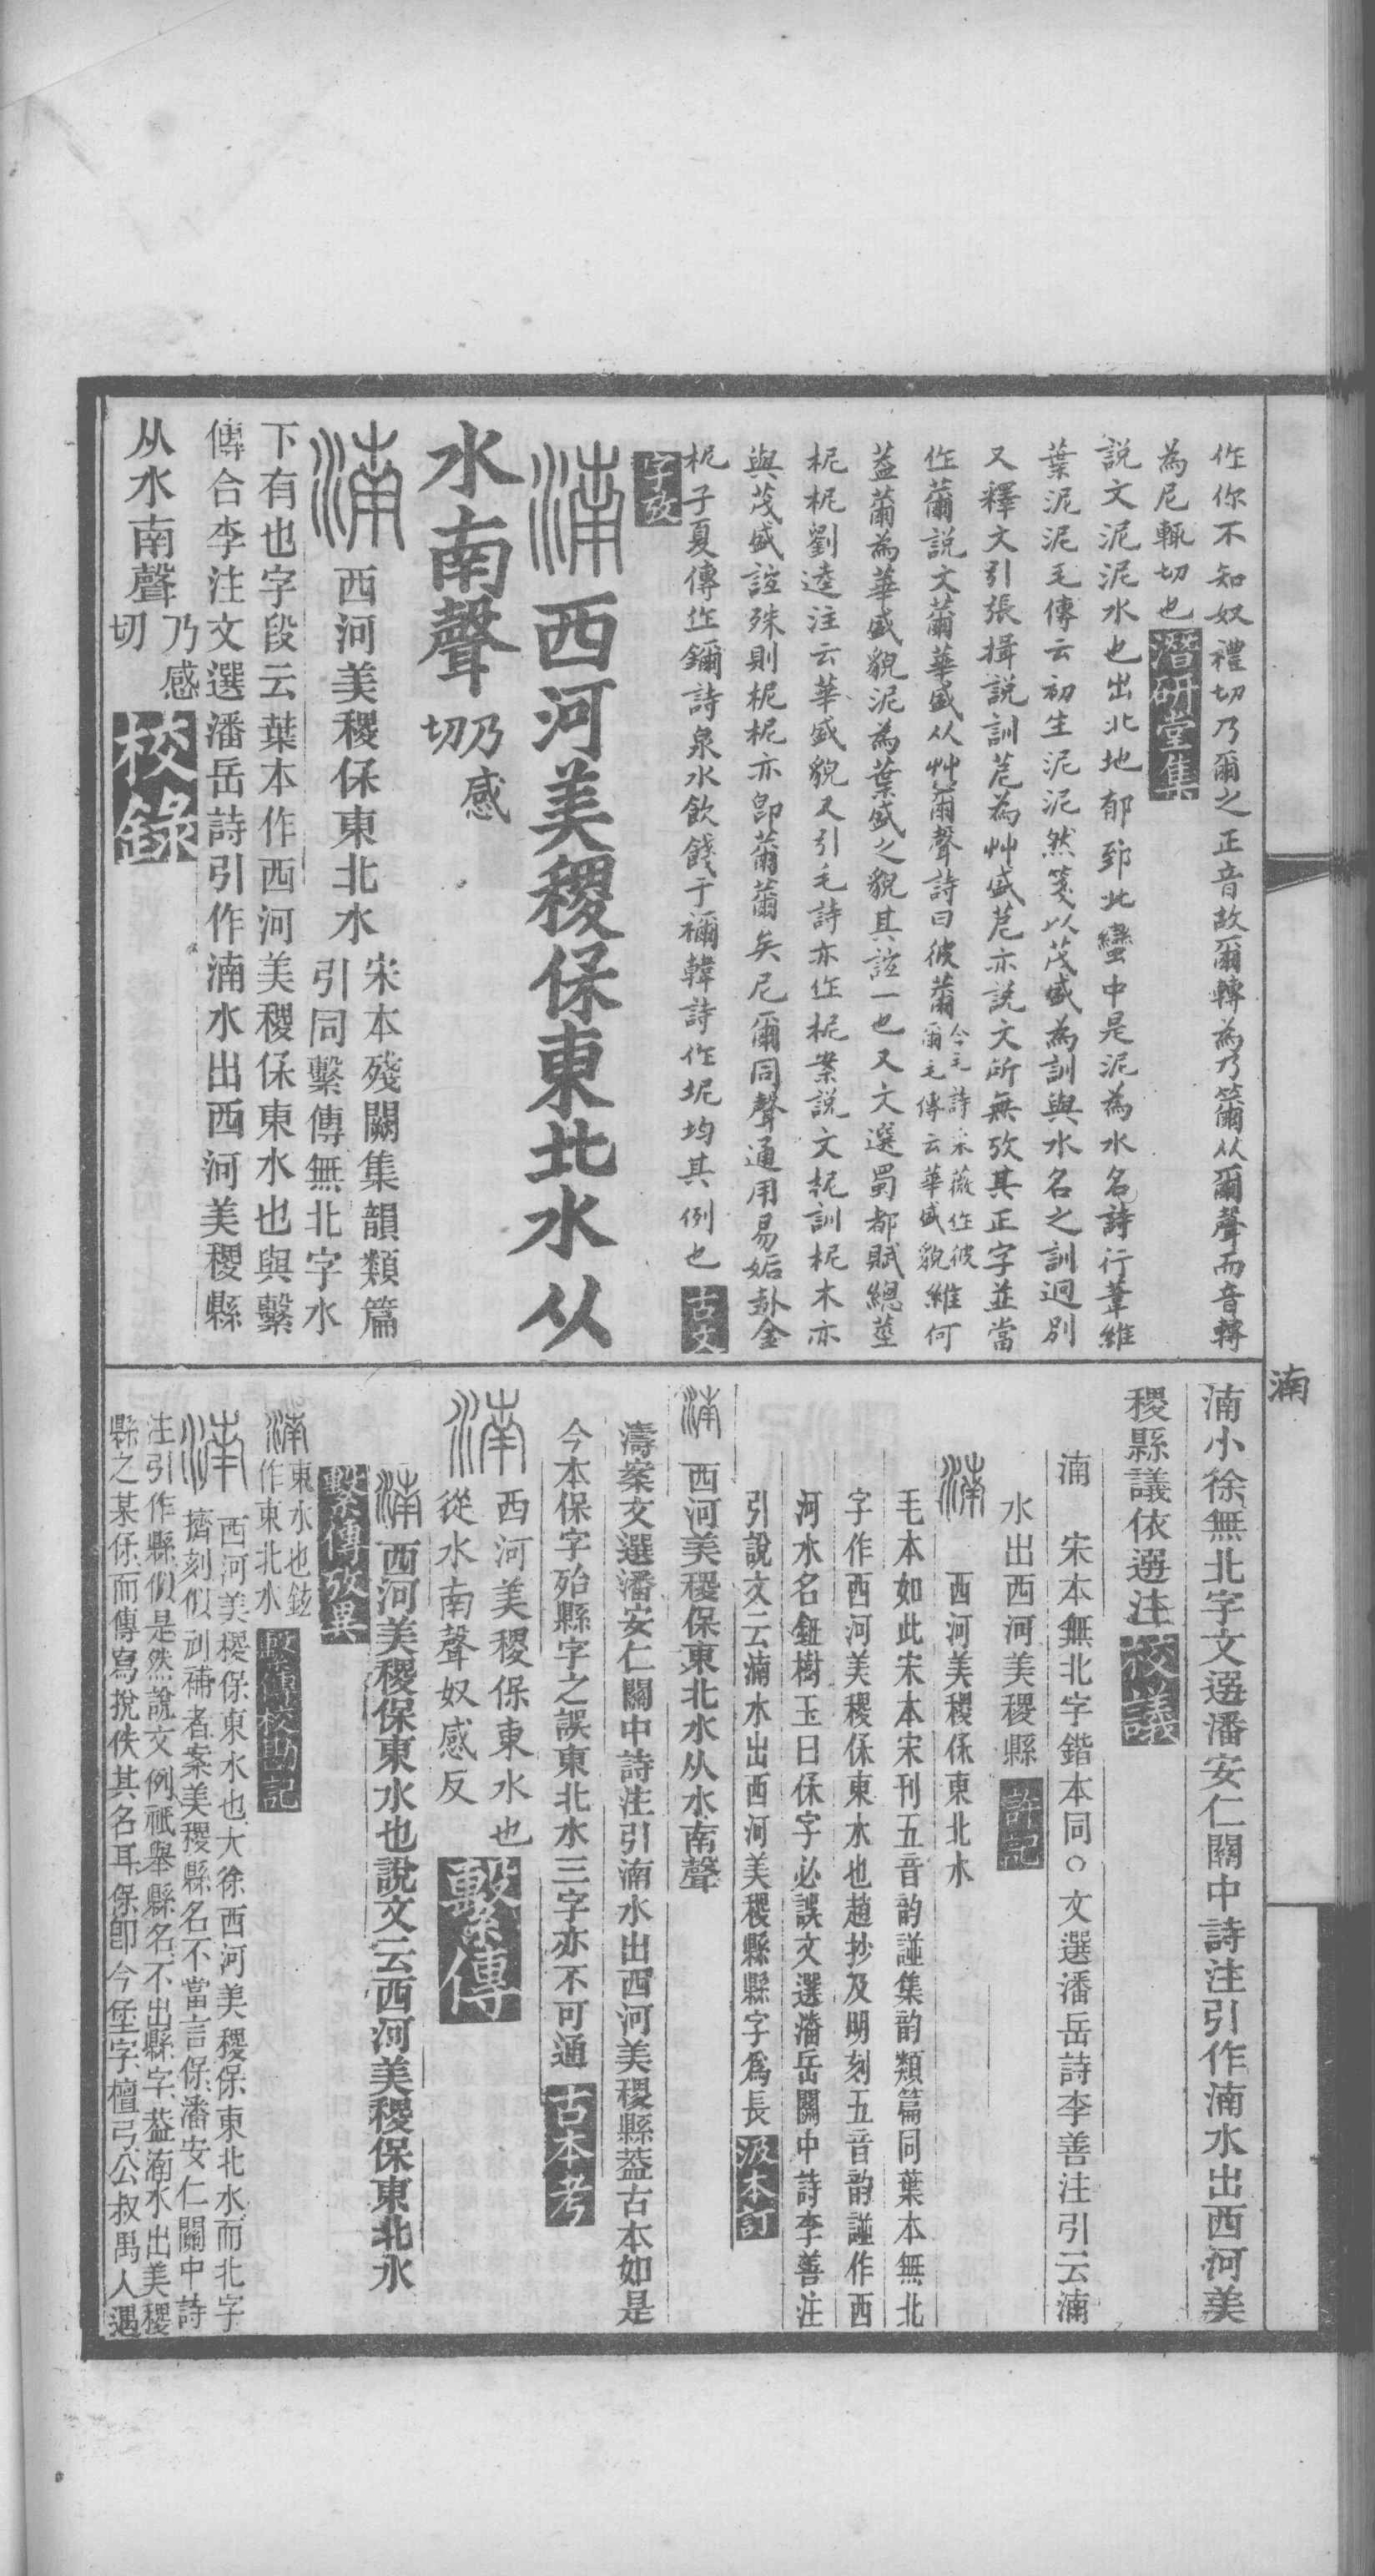 作你不知奴禮切乃爾之正音故爾轉為乃䉲从爾聲而音轉
為尼輒切也潛研堂集
說文泥泥水也出北地郁郅北蠻中是泥為水名詩行葦維
葉泥泥毛傳云初生泥泥然箋以茂盛為訓與水名之訓迥別
又釋文引張揖說訓苨為艸盛苨亦說文所無攷其正字並當
作薾說文薾華盛从艸爾聲詩曰彼薾今毛詩采薇作彼
爾毛傳云華盛貌維何
葢薾為華盛貌泥為葉盛之貌其誼一也又文選蜀都賦總莖
柅柅劉逵注云華盛貌又引毛詩亦作柅案說文柅訓柅木亦
與茂盛誼殊則柅柅亦卽薾薾矣尼爾同聲通用易姤卦金
柅子夏傳作鑈詩泉水飲餞于禰韓詩作坭均其例也古文
字攷
湳西河美稷保東北水从
水南聲乃感
切
湳西河美稷保東北水宋本殘闕集韻類篇
引同繫傳無北字水
下有也字段云葉本作西河美稷保東水也與繫
傳合李注文選潘岳詩引作湳水出西河美稷縣
从水南聲乃感
切校錄
湳
湳小徐無北字文選潘安仁關中詩注引作湳水出西河美
稷縣議依選注校議
湳 宋本無北字鍇本同○文選潘岳詩李善注引云湳
水出西河美稷縣許記
湳 西河美稷保東北水
毛本如此宋本宋刊五音韵譜集韵類篇同葉本無北
字作西河美稷保東水也趙抄及明刻五音韵譜作西
河水名鈕樹玉曰保字必誤文選潘岳關中詩李善注
引說文云湳水出西河美稷縣縣字爲長汲本訂
湳 西河美稷保東北水从水南聲
濤案文選潘安仁關中詩注引湳水出西河美稷縣葢古本如是
今本保字殆縣字之誤東北水三字亦不可通古本考
湳西河美稷保東水也
從水南聲奴感反繫傳
湳西河美稷保東水也說文云西河美稷保東北水
繫傳攷異
湳東水也鉉
作東北水繫傳校勘記
湳西河美稷保東水也大徐西河美稷保東北水而北字
擠刻似剜補者案美稷縣名不當言保潘安仁關中詩
注引作縣似是然說文例祇舉縣名不出縣字葢湳水出美稷
縣之某保而傳寫挩佚其名耳保卽今堡字檀弓公叔禺人遇